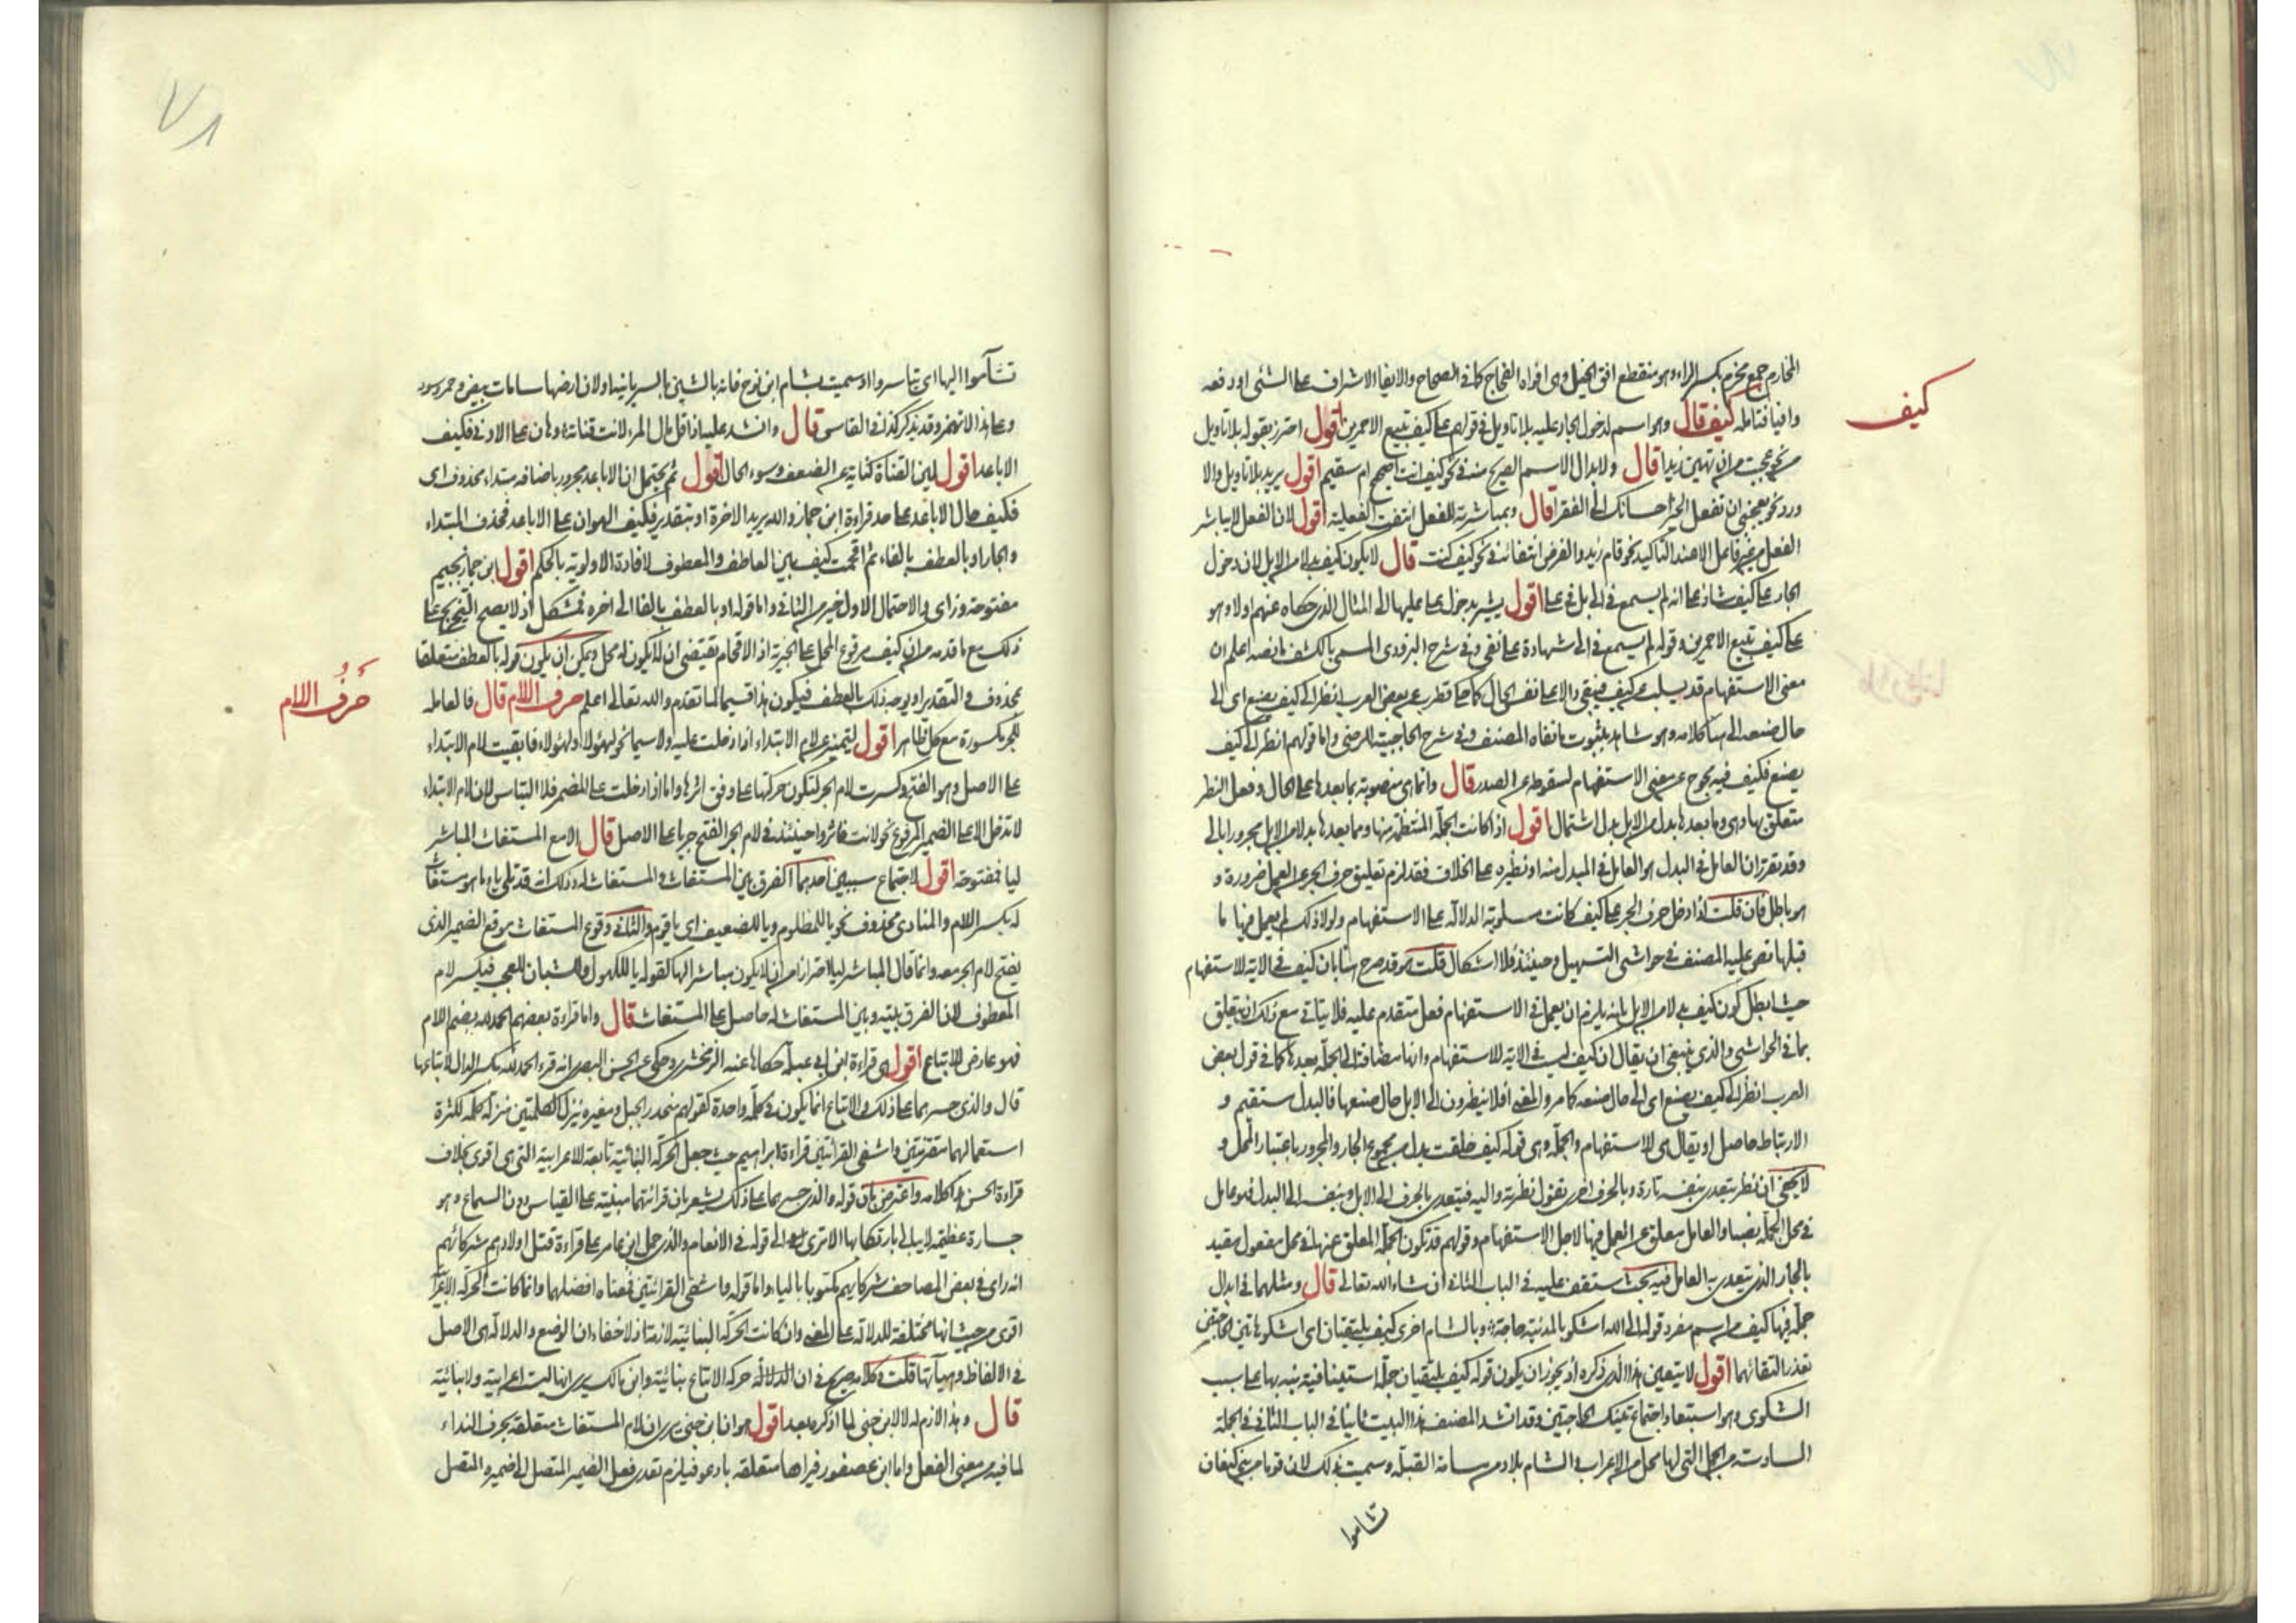 كيف
المخارم جمع مخرم بكسر الراء وهو منقطع انف الجبل وهى افواه الفجاج كما فى الصحاح والايفاء الاشراف على الشئ اود فعه
وافيا فتامله كيف قال وهو اسم لدخول الجار عليه بلا تاويل فى قولهم على كيف تبيع الاحمرين اقول احترز بقوله بلا تاويل
من نحو عجبت من ان تهين زيدا قال ولابدال الاسم الصريح منه فى نحو كيف انت اصحيح ام سقيم اقول يريد بلا تاويل والا
ورد نحو يعجبنى ان تفعل الخير احسانك الى الفقراء قال وبمباشرته للفعل انتفت الفعلية اقول لان الفعل لا يباشر
الفعل من غير فاصل الا عند التاكيد نحو قام قام زيد والفرض انتفائه فى نحو كيف كنت قال لا يكون كيف بدلا من الابل لان دخول
الجار على كيف شاذ على انه لم يسمع فى الى بل فى على اقول يشير بدخول على عليها الى المثال الذى حكاه عنهم اولا وهو
على كيف تبيع الاحمرين وقوله لم يسمع فى الى شهادة على نفى وفى شرح البزدوى المسمى بالكشف ما نصه اعلم ان
معنى الاستفهام قد يسلب عن كيف فيبقى دالا على نفس الحال كما حكى قطرب عن بعض العرب انظر الى كيف يصنع اى الى
حال صنعه الى هنا كلامه وهو شاهد بثبوت ما نفاه المصنف وفى شرح الحاجبية للرضى واما قولهم انظر الى كيف
يصنع فكيف فيه مخرج عن معنى الاستفهام لسقوطه عن الصدر قال وانما هى منصوبة بما بعدها على الحال وفعل النظر
متعلق بها وهى وما بعدها بدل من الابل بدل اشتمال اقول اذا كانت الجملة المنتظمة منها ومما بعدها بدلا من الابل مجرورا بالى
وقد تقرر ان العامل فى البدل هو العامل فى المبدل منه او نظيره على الخلاف فقد لزم تعليق حرف الجر عن العمل ضرورة و
هو باطل فان قلت اذا دخل حرف الجر على كيف كانت مسلوبة الدلالة على الاستفهام ولولا ذلك لم يعمل فيها ما
قبلها نص عليه المصنف فى حواشى التسهيل وحينئذ فلا اشكال قلت هو قد صرح هنا بان كيف فى الاية للاستفهام
حيث ابطل كون كيف بدلا من الابل بانه يلزم ان يعمل فى الاستفهام فعل متقدم عليه فلا يتاتى مع ذلك ان يتعلق
بما فى الحواشى والذى ينبغى ان يقال ان كيف ليس فى الاية للاستفهام وانها مضافة الى الجملة بعدها كما فى قول بعض
العرب انظر الى كيف يصنع اى الى حال صنعه كما مر والمعنى أفلا ينظرون الى الابل حال صنعها فالبدل مستقيم و
الارتباط حاصل او يقال هى للاستفهام والجملة وهى قوله كيف خلقت بدل من مجموع الجار والمجرور باعتبار المحل و
لا يخفى ان نظر يتعدى بنفسه تارة وبالحرف اخرى تقول نظرته واليه فيتعدى بالحرف الى الابل وبنفسه الى البدل فهو عامل
فى محل الجملة نصبا والعامل معلق عن العمل فيها لاجل الاستفهام وقولهم قد تكون الجملة المعلق عنها فى محل مفعول مقيد
بالجار الذى يتعدى به العامل فيه بحث ستقف عليه فى الباب الثانى ان شاء الله تعالى قال ومثلهما فى ابدال
جملة فيها كيف من اسم مفرد قوله الى الله اشكو بالمدينة حاجة وبالشام اخرى كيف يلتقيان اى اشكو هاتين الحاجتين
تعذر التقائهما اقول لا يتعين هذا الذى ذكره أذ يجوز ان يكون قوله كيف يلتقيان جملة استينافية نبه بها على سبب
الشكوى وهو استبعاد اجتماع تينك الحاجتين وقد انشد المصنف هذا البيت ثانيا فى الباب الثانى فى الجملة
السادسة من الجمل التى لها محل من الاعراب والشام بلاد من سامة القبلة وسميت بذلك لان قوما من بنى كنعان
تشاموا
٧١
تشأموا اليها اى تياسروا او سميت بشام ابن نوح فانه بالشين بالسريانية او لان ارضها شامات بيض وحمر وسود
وعلى هذا لا تهمز وقد تذكر كذا فى القاموس قال وانشد عليه اذا قل مال المرء لانت قناته وهان على الادنى فكيف
الاباعد اقول لين القناة كناية عن الضعف وسوء الحال اقول ثم يحتمل ان الاباعد مجرور باضافة مبتداء محذوف اى
فكيف حال الاباعد على حد قراءة ابن جماز والله يريد الاخرة او بتقدير فكيف الهوان على الاباعد فحذف المبتداء
والجار او بالعطف بالفاء ثم اقحمت كيف بين العاطف والمعطوف لافادة الاولوية بالحكم اقول ابن جماز بجيم
مفتوحة وزاى والاحتمال الاول خير من الثانى واما قوله او بالعطف بالفا الى اخره فمشكل اذ لا يصح التخريج على
ذلك مع ما قدمه من ان كيف مرفوع المحل على الخبرية اذ الاقحام يقتضى ان لا يكون له محل ويمكن ان يكون قوله بالعطف متعلقا
بمحذوف والتقدير او يوجه ذلك بالعطف فيكون هذا قسيما لما تقدم والله تعالى اعلم حرف اللام قال فالعاملة
حرف اللام
للجر مكسورة مع كل ظاهر اقول لتتميز عن لام الابتداء اذا دخلت عليه ولا سيما نحو لهؤلاء ولهؤلاء فابقيت لام الابتداء
على الاصل وهو الفتح وكسرت لام الجر لتكون حركتها على وفق اثرها واما اذا دخلت على المضمر فلا التباس لان لام الابتداء
لا تدخل الا على الضمير المرفوع نحو لانت فاثروا حينئذ فى لام الجر الفتح جريا على الاصل قال الا مع المستغاث المباشر
ليا فمفتوحة اقول لاجتماع سببين احدهما الفرق بين المستغاث والمستغاث له وذلك انه قد تلى يا ما هو مستغاث
له بكسر اللام والمنادى محذوف نحو يا للمظلوم ويا للضعيف اى يا قوم والثانى وقوع المستغاث موقع الضمير الذى
يفتح لام الجر معه وانما قال المباشر ليا احترازا من ان لا يكون مباشرا لها كقوله يا للكهول وللشبان للعجب فيكسر لام
المعطوف لان الفرق بينه وبين المستغاث له حاصل على المستغاث قال واما قراءة بعضهم الحمد لله بضم اللام
فهو عارض للاتباع اقول هى قراءة ابن ابى عبلة حكاها عنه الزمخشرى وحكى عن الحسن البصرى انه قرء الحمد لله بكسر الدال لاتباعها
قال والذى جسرهما على ذلك والاتباع انما يكون فى كلمة واحدة كقولهم منحدر الجبل ومغيره تنزل الكلمتين منزلة كلمة لكثرة
استعمالهما مقترنتين واشفى القرائتين قراءة ابراهيم حيث جعل الحركة البنائية تابعة للاعرابية التى هى اقوى بخلاف
قراءة الحسن هذا كلامه واعترض بان قوله والذى جسرهما على ذلك يشعر بان قرائتهما مبنية على القياس دون السماع وهو
جسارة عظيمة لا يبالى بارتكابها الا ترى الى قوله فى الانعام والذى حمل ابن عامر على قراءة قتل اولادهم شركائهم
انه راى فى بعض المصاحف شركايهم مكتوبا بالياء واما قوله واشفى القرائتين فمعناه افضلهما وانما كانت الحركة الاعرابية
اقوى من حيث انها مختلفة للدلالة على المعنى وان كانت الحركة البنائية لازمة اذ لا خفاء ان الوضع والدلالة هى الاصل
فى الالفاظ وهيآتها قلت وكلامه صريح فى ان الدلالة حركة الاتباع بنائية وابن مالك يرى انها ليست اعرابية ولا بنائية
قال وهذا لازم له لا لابن جنى لما اذكره بعد اقول هو ان ابن جنى يرى ان لام المستغاث متعلقة بحرف النداء
لما فيه من معنى الفعل واما ابن عصفور فيراها متعلقة بادعو فيلزم تعدى فعل الضمير المتصل الى ضميره المتصل